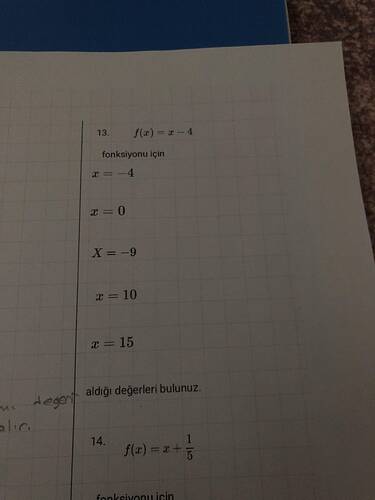 13. f(x) = x − 4
fonksiyonu için
x = −4
x = 0
X = −9
x = 10
x = 15
değeri
aldığı değerleri bulunuz.
14. f(x) = x + 1/5
fonksiyonu için